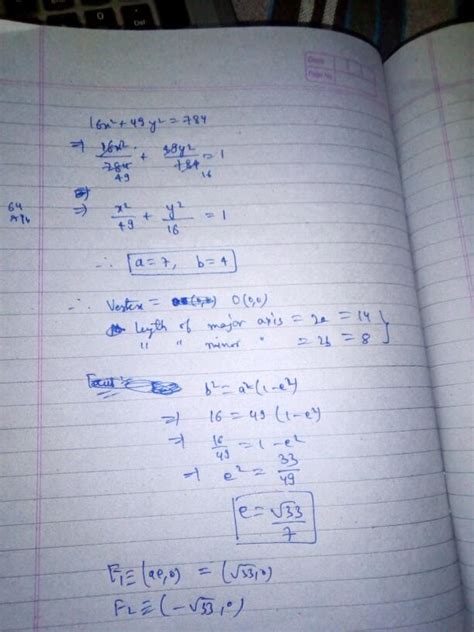 Date
Page No.
16x² + 49y² = 784
⇒ 16x²/784 + 49y²/784 = 1
49 16
⇒ x²/49 + y²/16 = 1
∴ a = 7, b = 4
∴ Vertex = O(0,0)
Length of major axis = 2a = 14
" " minor " = 2b = 8
b² = a²(1-e²)
⇒ 16 = 49 (1-e²)
⇒ 16/49 = 1-e²
⇒ e² = 33/49
e = √33/7
F₁ ≡ (ae,0) = (√33,0)
F₂ ≡ (-√33,0)